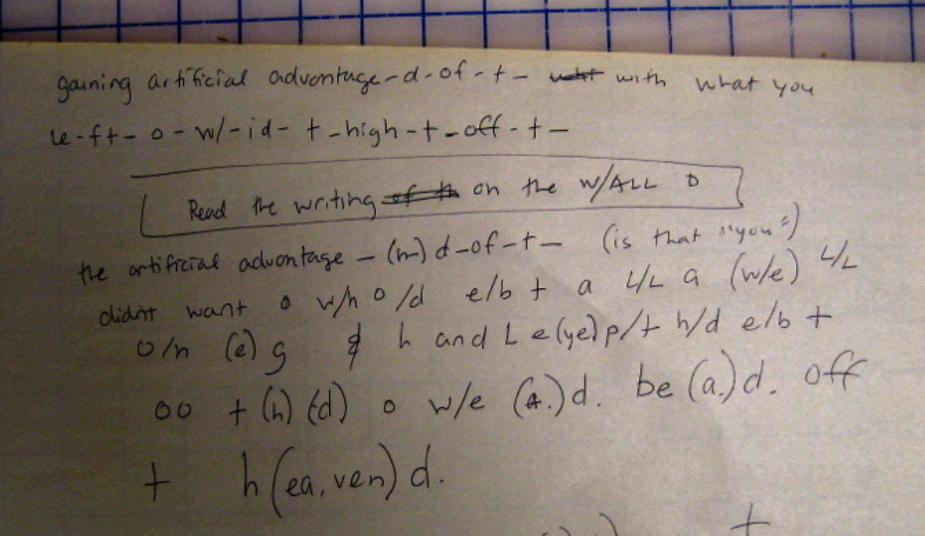 gaining artificial advantage-d-of-t- with what you
le-ft-o-w/-id- t-high-t-off-t-
Read the writing on the w/ALL D
the artificial advantage - (m) d-of-t- (is that "you")
didn't want o w/h o/d e/b t a L/L a (w/e) L/L
o/n (e) g & h and L e(ye) p/t h/d e/b t
oo t (h) (d) o w/e (a.)d. be (a.)d. off
t h(ea,ven)d.
t